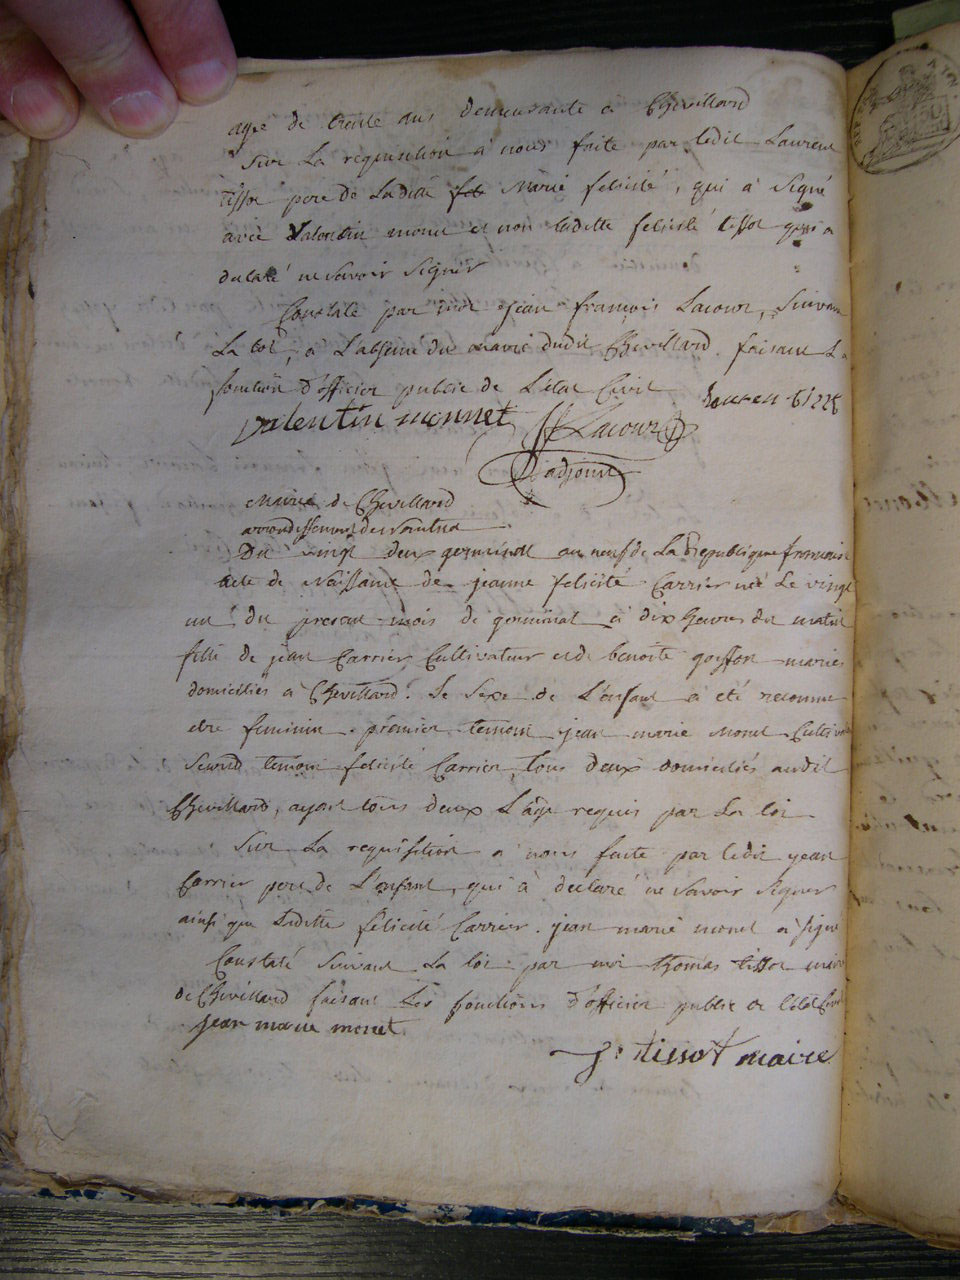 agée de trente ans demeurante a Chevillard
Sur La requisition a nous faite par ledit Laurent
tissot pere de Ladite Marie felicité, qui a Signé
avec Valentin monet et non ladette felicité tissot qui a
declaré ne Savoir Signer
Constaté par moi Jean françois Lacour, Suivant
La loi, a L'absence du maire dudit Chevillard faisant La
fonction d'officier public de L'état Civil
valentin monnet Lacour
adjoint
Mairie de Chevillard
arrondissement de nantua
Du vingt deux germinal an neuf de La Republique francaise
acte de Naissance de jeanne felicité Carrier neé Le vingt
un du present mois de germinal a dix heures du matin
fille de jean Carrier Cultivateur et de benoite goiffon mariés
domiciliés a Chevillard. Le Sexe de L'enfant a eté reconnu
etre feminin. premier temoin jean marie Monet
Second temoin felicité Carrier, tous deux domiciliés audit
Chevillard, ayant tous deux L'âge requis par La loi
Sur La requisition a nous faite par ledit jean
Carrier pere de L'enfant, qui à declaré ne Savoir Signer
ainsi que Laditte felicité Carrier. jean marie monet a signé
Constaté Suivant La loi par moi thomas tissot maire
de Chevillard faisant Les fonctions d'officier public de l'etat Civil
jean marie monet
tissot maire